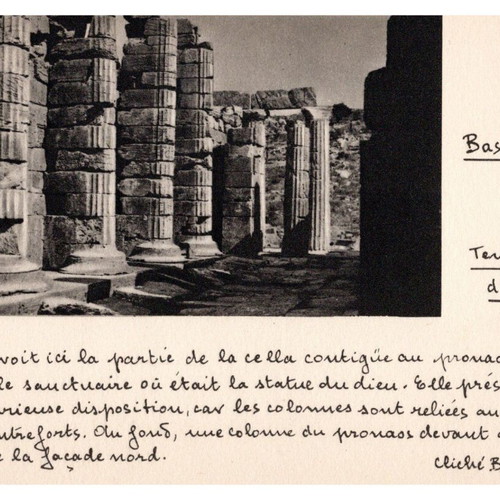 Bas
Tem
d
voit ici la partie de la cella contigüe au pronao
le sanctuaire où était la statue du dieu. Elle prés
rieuse disposition, car les colonnes sont reliées au
ntreforts. Au fond, une colonne du pronaos devant
la façade nord.
Cliché B